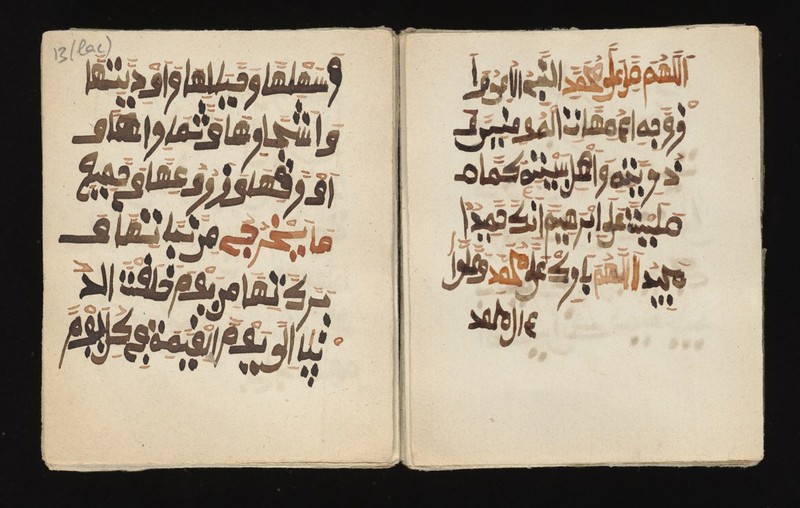 اللهم صل على محمد النبي الامي وا
زوجه امهات المومنين و
ذريته واهل بيته كما
صليت على ابرهيم انك حميد
مجيد اللهم بارك على محمد وعلى
ال محمد
13 (lac)
وسهلها وجبلها واوديتها
واشجارها وثمارها و
اورقها وزروعها وجميع
ما يخرج من نباتها و
بركتها من يوم خلقت الد
نيا الى يوم القيمة في كل يوم